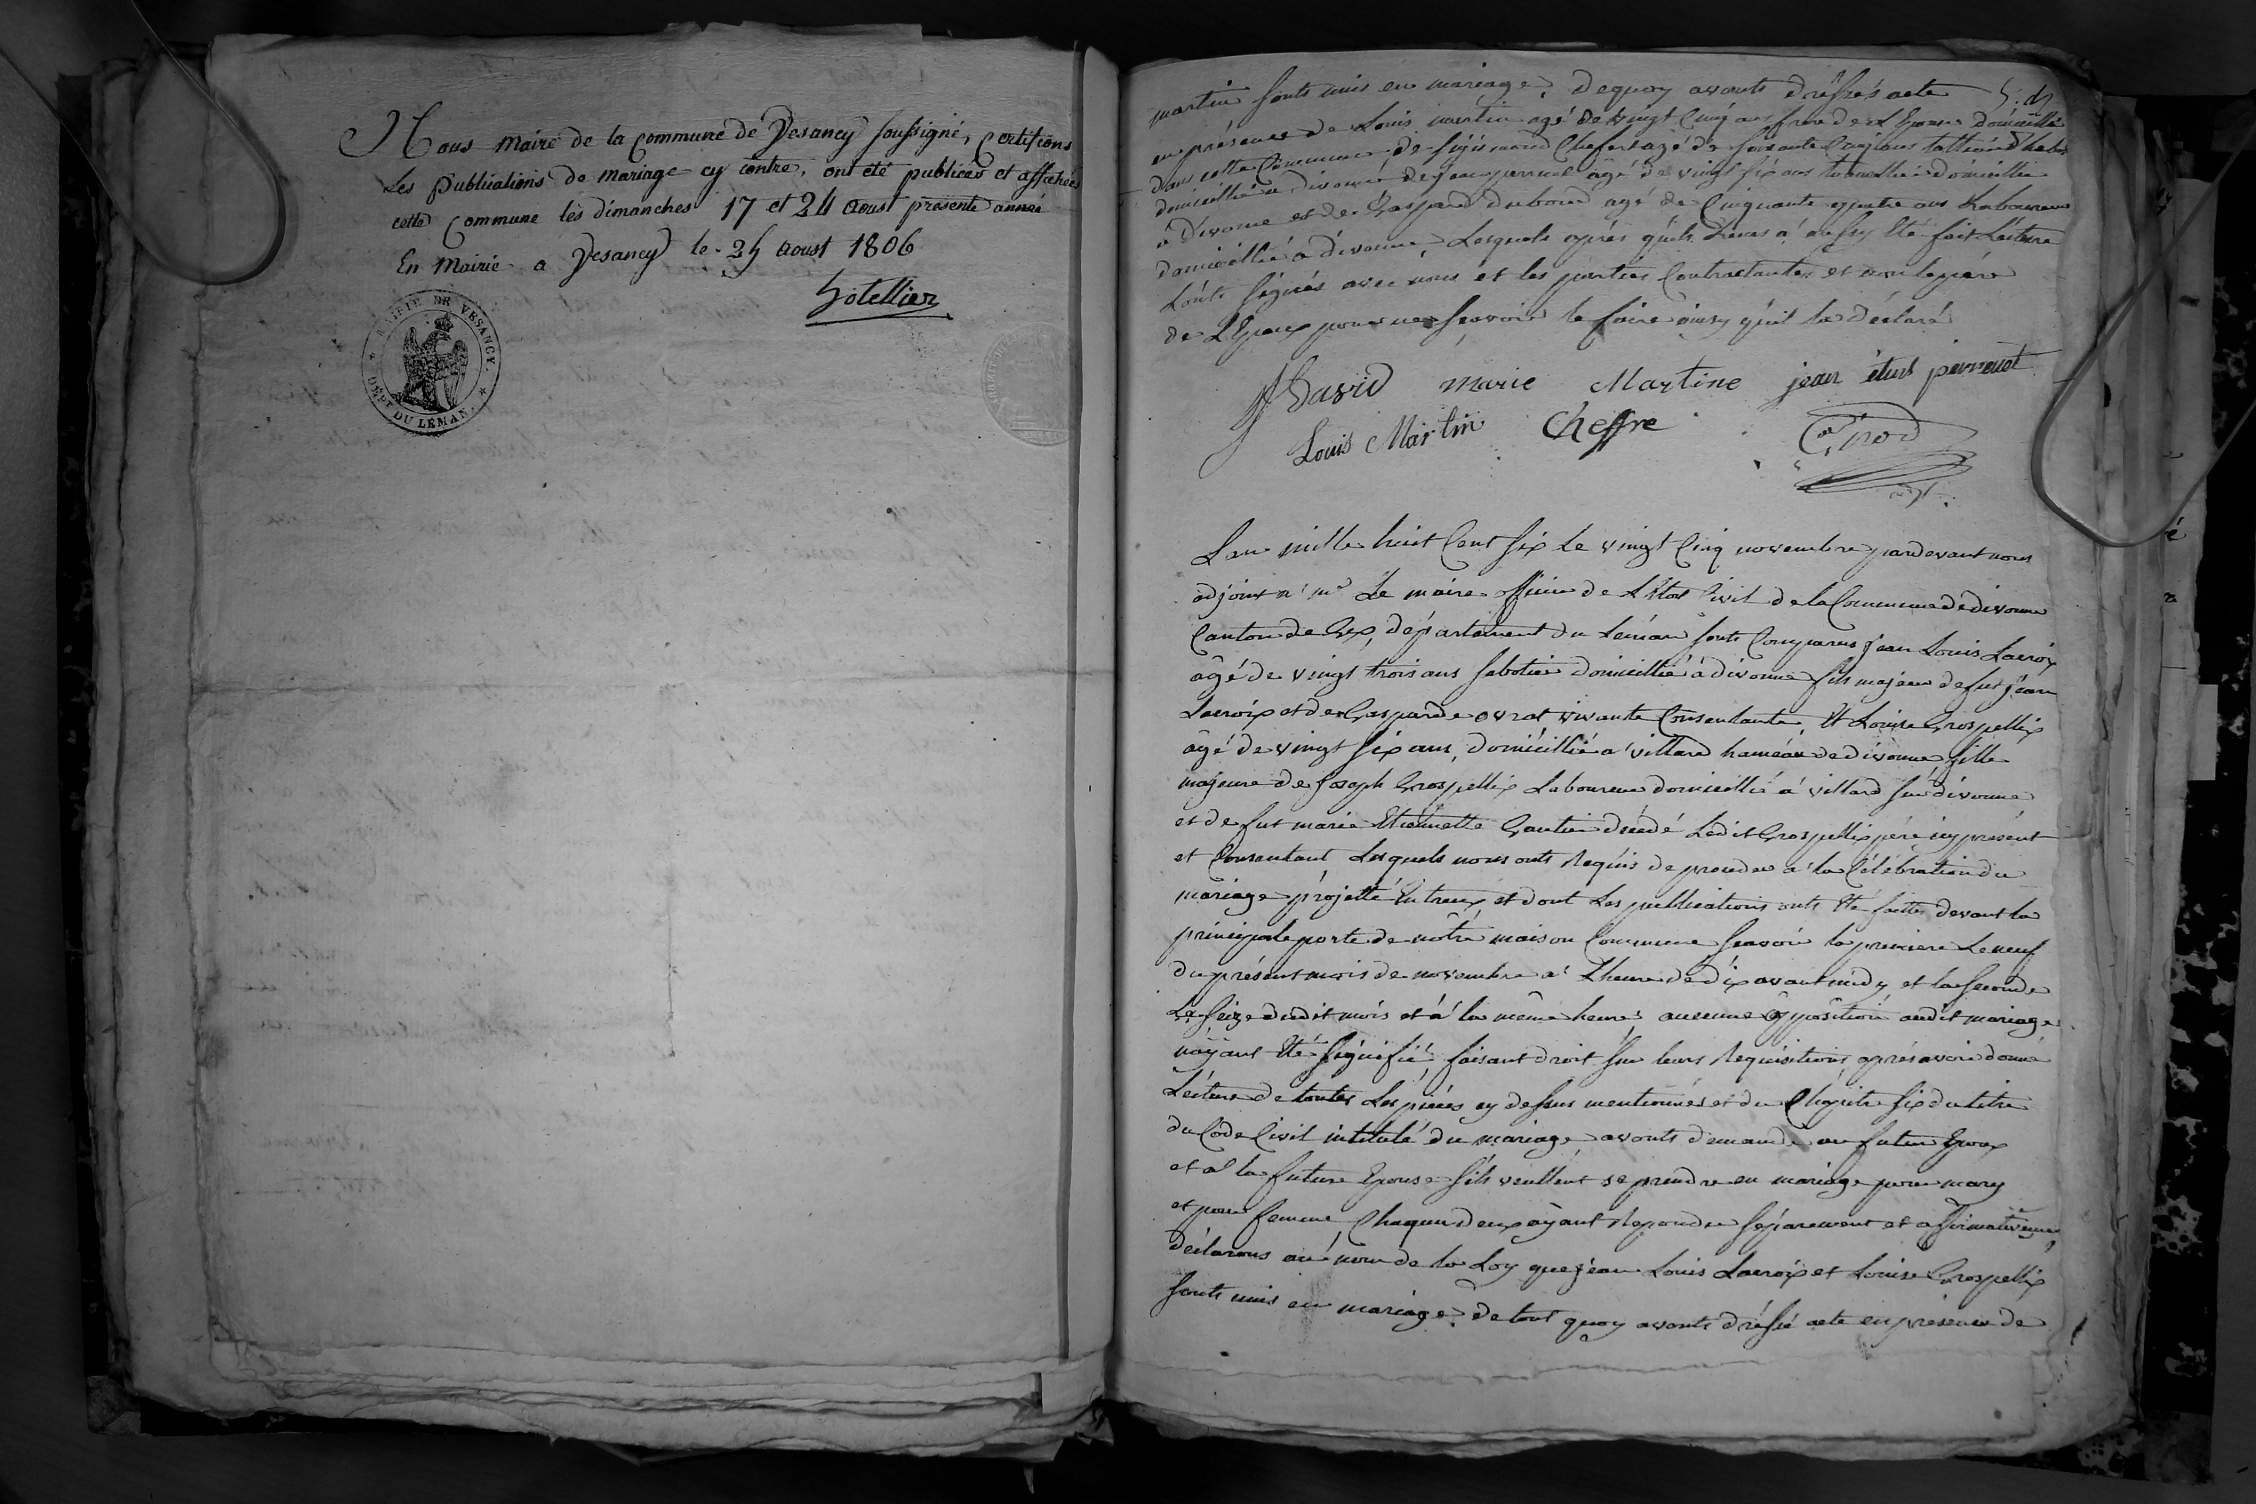 Nous Maire de la Commune de Vesancy soussigné, Certifions
Les Publications de mariage cy contre, ont été publiées et affichées
cette Commune les dimanches 17 et 24 aoust présente année
En Mairie a Vesancy le 25 aoust 1806
hotellier
MAIRIE DE VESANCY.
DÉPT DU LÉMAN.
martin sonts unis en mariage, dequoy avonts dréssés acte
en présence de Louis martin agé de vingt Cinq ans frere de L'Epouse domicillié
dans cette Commune, de sigismond Chefre agé de soixante Cinq ans tallieur d'habit
domicillié a divonne, de jean perrenet agé de vingt six ans domicillié
a divonne et de Gaspard dubout agé de Cinquante quatre ans Laboureur
domicillié a divonne, Lesquels après qu'il Leurs a aussy été fait Lecture
Lonts signés avec nous et les parties Contractantes et non le père
de L'Epoux pour ne sçavoir le faire ainsy qu'il la déclaré
David marie Martine jean perrenet
Louis Martin Cheffre
Lan mille huit Cent six le vingt Cinq novembre pardevant nous
adjoint a mr Le maire officier de L'Etat Civil de la Commune de divonne
Canton de Gex, département du Léman sonts Comparus jean Louis Lacroix
âgé de vingt trois ans sabotier domicillié à divonne fils majeur de fut jean
Lacroix et de Gasparde ovrat vivante Consentante, Et Louise Grospellix
âgé de vingt six ans, domicillié a villard hameau de divonne, fille
majeure de Joseph Grospellix Laboureur domicillié a villard sur divonne
et de fut marie Etiennette Gautier décédé Ledit Grospellix père icy présent
et Consentant Lesquels nous onts Requis de proceder a la Célébration du
mariage projetté Entreux et dont Les publications onts été faittes devant la
principale porte de nôtre maison Commune sçavoir la premiere Le neuf
du présent mois de novembre a L'heure de dix avant midy, et la seconde
Le seize dudit mois et à la même heure, aucune opposition audit mariage
nayant été signéfié, faisant droit sur leurs Requisitions, après avoir donné
Lécture de toutes Les pièces cy dessus mentionnés et du Chapitre six du titre
du Code Civil intitulé du mariage avonts demandé au futur Epoux
et a la future Epouse s'ils veullent se prendre en mariage pour mary
et pour femme, Chaqun deux ayant Repondu séparement et affirmativement,
déclarons au nom de la Loy que jean Louis Lacroix et Louise Grospellix
sonts unis en mariage, de tout quoy avonts dréssé acte en présence de